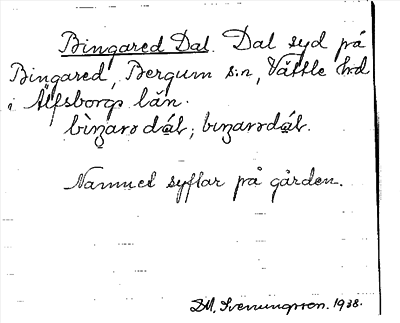 Bingared Dal. Dal syd på
Bingared, Bergum s:n, Vättle hrd
i Älfsborgs län.
bìŋarə dɑ́l; biŋarədɑ́l.
Namnet syftar på gården.
D.M. Svenungsson. 1938.